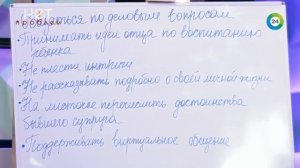 нет проблем
ться по деловым вопросам
• Принимать идеи отца по воспитанию
ребёнка
• Не плести интриги
• Не рассказывать подробно о своей личной жизни
• На листочке перечислить достоинства
бывшего супруга
• Поддерживать виртуальное общение